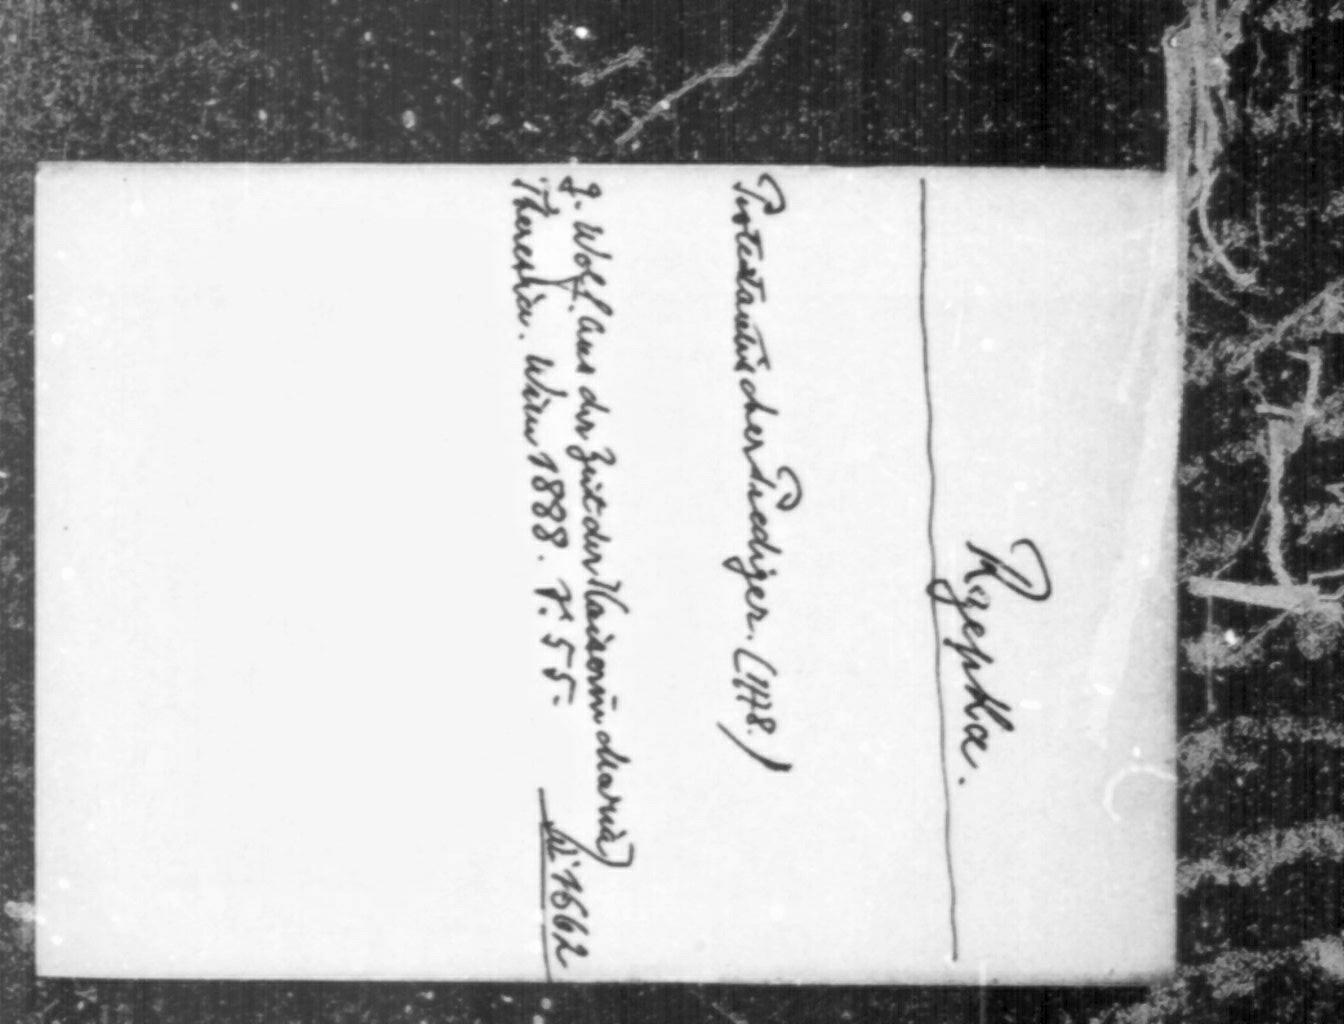 Rzepka.
Protestantischer Prediger. (1778.)
G. Wolf. Aus der Zeit der Kaiserin Maria
Theresia. Wien 1888. P. 55.
W. 1662